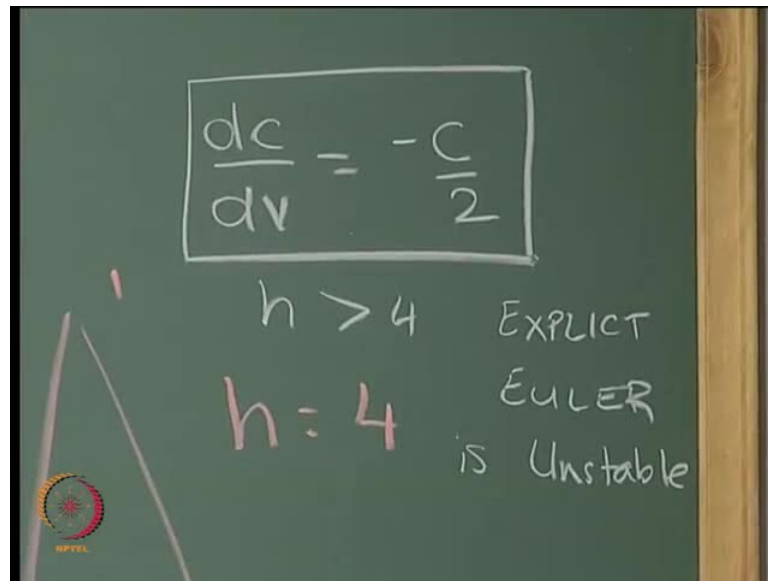 dc/dv = -C/2
h > 4 EXPLICT
EULER
h = 4
is Unstable
NPTEL